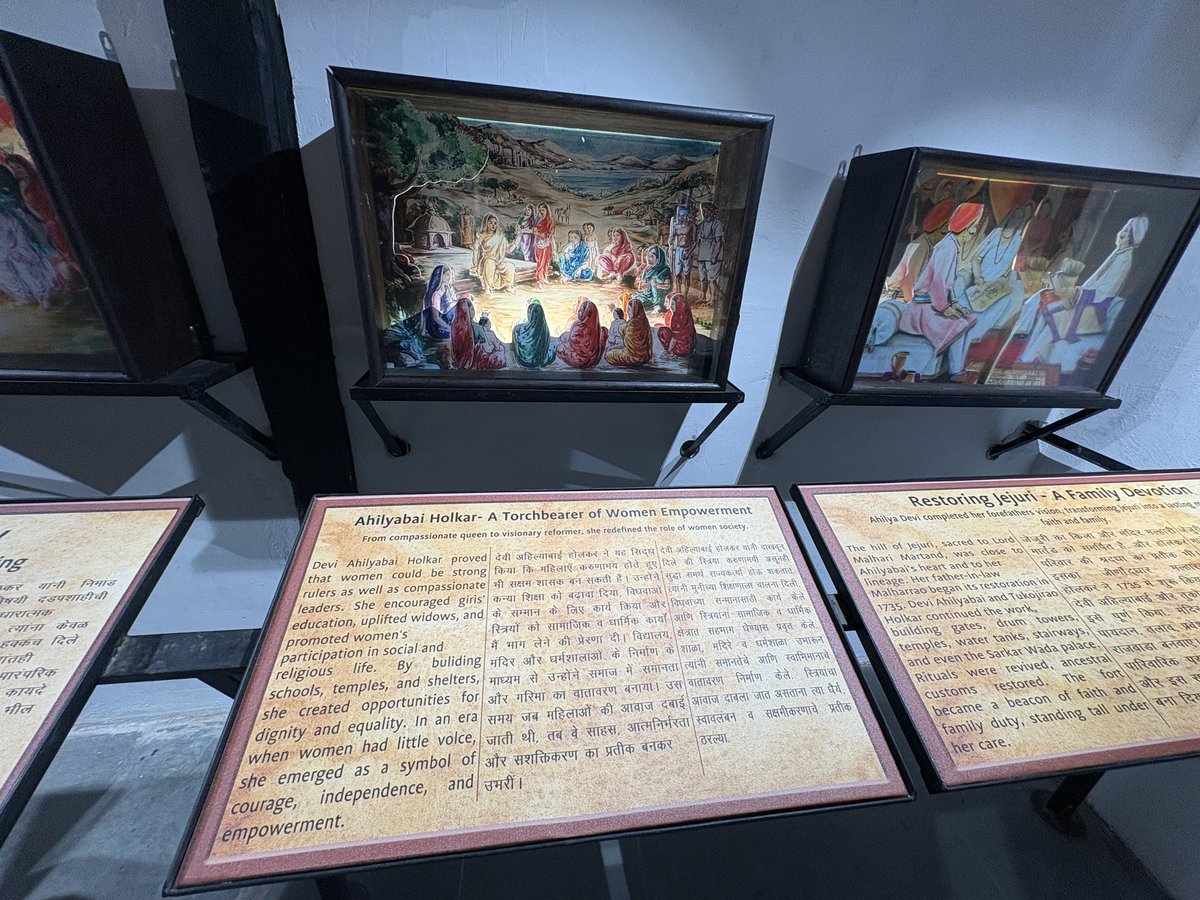 ing
कर यांनी निमाड
विषयी दडपशाहीची
धारात्मक
त्यांना केवळ
हक्कच दिले
ातही
पारंपरिक
कायदे
भील
Ahilyabai Holkar- A Torchbearer of Women Empowerment
From compassionate queen to visionary reformer, she redefined the role of women society.
Devi Ahilyabai Holkar proved
that women could be strong
rulers as well as compassionate
leaders. She encouraged girls'
education, uplifted widows, and
promoted women's
participation in social and
religious life. By buliding
schools, temples, and shelters,
she created opportunities for
dignity and equality. In an era
when women had little voice,
she emerged as a symbol of
courage, independence, and
empowerment.
देवी अहिल्याबाई होलकर ने यह सिद्ध
किया कि महिलाएँ करुणामय होते हुए
भी सक्षम शासक बन सकती हैं। उन्होंने
कन्या शिक्षा को बढ़ावा दिया, विधवाओं
के सम्मान के लिए कार्य किया और
स्त्रियों को सामाजिक व धार्मिक कार्यों
में भाग लेने की प्रेरणा दी। विद्यालय,
मंदिर और धर्मशालाओं के निर्माण के
माध्यम से उन्होंने समाज में समानता
और गरिमा का वातावरण बनाया। उस
समय जब महिलाओं की आवाज दबाई
जाती थी, तब वे साहस, आत्मनिर्भरता
और सशक्तिकरण का प्रतीक बनकर
उभरीं।
देवी अहिल्याबाई होलकर यांनी दाखवून
दिले की स्त्रिया करुणामयी असूनही
सुद्धा समर्थ राज्यकर्त्या होऊ शकतात.
त्यांनी मुलींच्या शिक्षणाला चालना दिली,
विधवांच्या सन्मानासाठी कार्य केले
आणि स्त्रियांना सामाजिक व धार्मिक
क्षेत्रात सहभाग घेण्यास प्रवृत्त केले.
शाळा, मंदिर व धर्मशाळा उभारून
त्यांनी समानतेचे आणि स्वाभिमानाचे
वातावरण निर्माण केले. स्त्रियांचा
आवाज दाबला जात असताना त्या धैर्य,
स्वावलंबन व सक्षमीकरणाचे प्रतीक
ठरल्या.
Restoring Jejuri - A Family Devotion
Ahilya Devi completed her forefathers vision, transforming Jejuri into a lasting
faith and family.
The hill of Jejuri, sacred to Lord
Malhari Martand, was close to
Ahilyabai's heart and to her
lineage. Her father-in-law
Malharrao began its restoration in
1735. Devi Ahilyabai and Tukojirao
Holkar continued the work,
building gates, drum towers,
temples, water tanks, stairways,
and even the Sarkar Wada palace.
Rituals were revived, ancestral
customs restored. The fort
became a beacon of faith and
family duty, standing tall under
her care.
जेजुरी का किला और
मार्तंड को समर्पित है और
परिवार की
इसका
होलकर
देवी अहिल्याबाई
इसे पूर्ण
पायदान,
राजवाडा
पारिवारिक
और इस
बना दिया